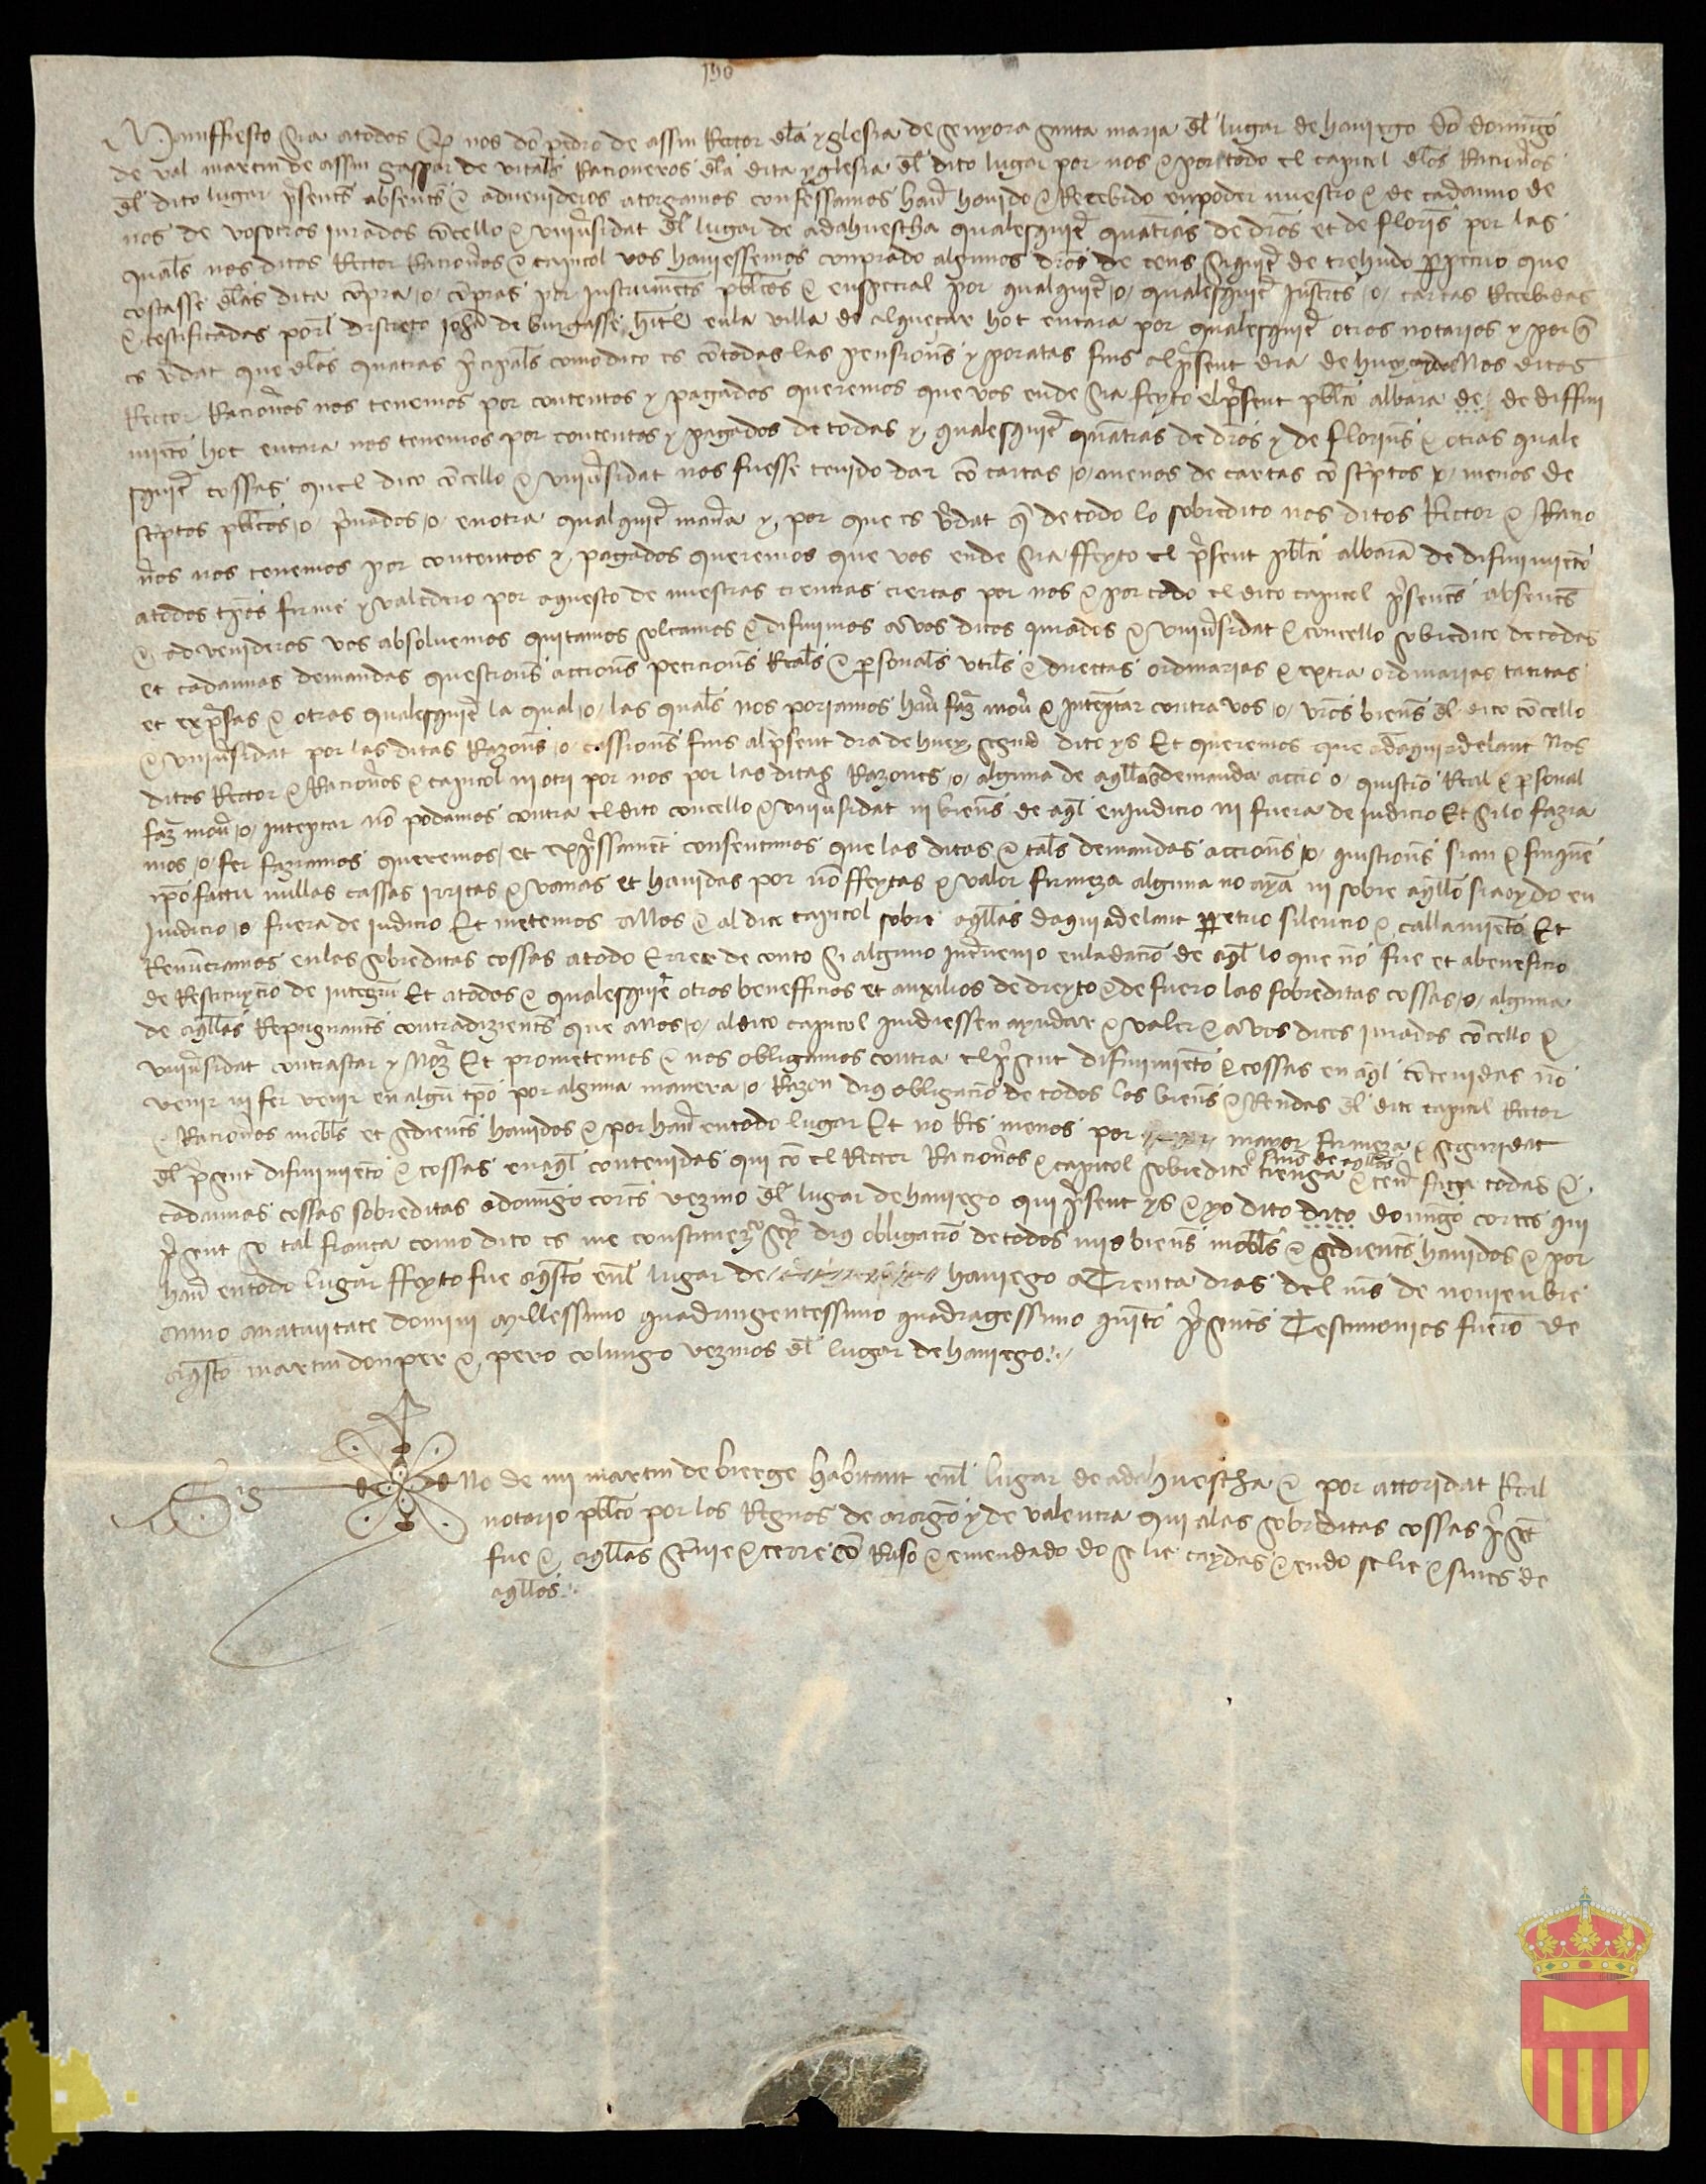 190
Maniffiesto sia atodos q̃ nos do pedro de assin Rector dla yglesia de senyora santa maria dl lugar de haniego do domingo
de val martin de assin gaspar de vitals Racioneros dla dita yglesia dl dito lugar por nos & por todo el capitol dlos Racionos
dl dito lugar psents absents & advenideros atorgamos confessamos hav havido & Recebido en poder nuestro & de cadauno de
nos de vosotros jurados concello & universidat dl lugar de adahuescha qualesquie quatias de dros et de florins por las
quals nos ditos Rector Racionos & capitol vos haviessemos conprado algunos dros de cens siquie de trehudo ppetuo que
costasse dlas dita conpra o conpras por instruments pblicos & enspecial por qualquie o qualesquie instrs o cartas Recebidas
& testificadas porl discreto joha de burgasse hitl enla villa de alqueçar hot encara por qualesquie otros notarios y por q̃
es vdat que dlas quatias pcipals como dito es contodas las pensions y poratas fins alpsent dia de huey Nos ditos
Rector Racionos nos tenemos por contentos y pagados queremos que vos ende sia feyto elpsent pblico albara de de diffini
miento hot encara nos tenemos por contentos y pagados de todas y qualesquie quatias de dros y de florins & otras quale
squie cossas quel dito concello & universidat nos fuesse tenido dar co cartas o menos de cartas co sciptos o menos de
sciptos pblicos o pvados o en otra qualquie mana y por que es vdat q̃ de todo lo sobredito nos ditos Rector & Racio
nos nos tenemos por contentos & pagados queremos que vos ende sia ffeyto el psent pblico albara de difinimiento
atodos tpos firme y valedero por aquesto de nuestras ciencias ciertas por nos & por todo el dito capitol psents absents
& advenideros vos absolvemos quitamos soltamos & difinimos a vos ditos jurados & universidat & concello sobredito de todas
et cadaunas demandas questions accions peticions Reals & psonals utils & directas ordinarias & extra ordinarias tacitas
et expsas & otras qualesquie la qual o las quals nos poriamos hav faz mov & Intemptar contra vos o vros biens dl dito concello
& universidat por las ditas Razons o cassions fins alpsent dia de huey segund dito ys Et queremos que adaquiadelant Nos
ditos Rector & Racionos & capitol ni otri por nos por las ditas Razones o alguna de aqllas demanda accio o quistio Real & psonal
faz mov o Intemptar no podamos contra el dito concello & universidat ni biens de aql enjudicio ni fuera de judicio Et silo fazia
mos o fer faziamos queremos et expssament consentimos que las ditas & tals demandas accions o quistions sian & finquen
ipso facto nullas cassas irritas & vanas et havidas por no ffeytas & valor firmeza alguna no ayan ni sobre aqllo sia oydo en
judicio o fuera de judicio Et metemos a Nos & al dito capitol sobre aqllas daquiadelant ppetuo silencio & callamiento Et
Renunciamos en las sobreditas cossas atodo Error de conto si alguno intvenio enladacio de aql lo que no fue et abeneficio
de Restituycio de integru Et atodos & qualesquie otros benefficios et auxilios de dreyto & de fuero las sobreditas cossas o alguna
de aqllas Repugnants contradizients que a Nos o aldito capitol pudiessen ayudar & valer & a vos ditos jurados concello &
universidat contrastar y Noz Et prometemos & nos obligamos contra elpsent difinimiento & cossas en aql contenidas no
venir ni fer venir en algun tpo por alguna manera o Razon dius obligacio de todos los biens & Rendas dl dito capitol Rector
& Racionos mobls et sedients havidos & por hav en todo lugar Et no Res menos por mayor firmeza & seguridat
dl psent difinimiento & cossas enaql contenidas qui co el Rector Racionos & capitol sobredito & sines de aqllos tienga & ten faga todas &
cadaunas cossas sobreditas a domingo cortes vezino dl lugar de haniego qui psent ys & yo dito dito domingo cortes qui
psent so tal fiança como dito es me constituezco sey dius obligacio de todos mis biens mobls & sedients havidos & por
hav en todo lugar ffeyto fue aqsto enl lugar de haniego a Trenta dias del mes de noviembre
anno anativitate domini millessimo quadringentessimo quadragessimo quinto psents Testimonios fueron de
aqsto martin don per & pero colungo vezinos dl lugar de haniego
Sig no de mi martin de bierge habitant enl lugar de adahuescha & por attoridat Real
notario pblico por los Regnos de aragon y de valencia qui alas sobreditas cossas psent
fue & aqllas scrivie & cerre co Raso & emendado do se lie caydas & endo se lie & sines de
aqllos